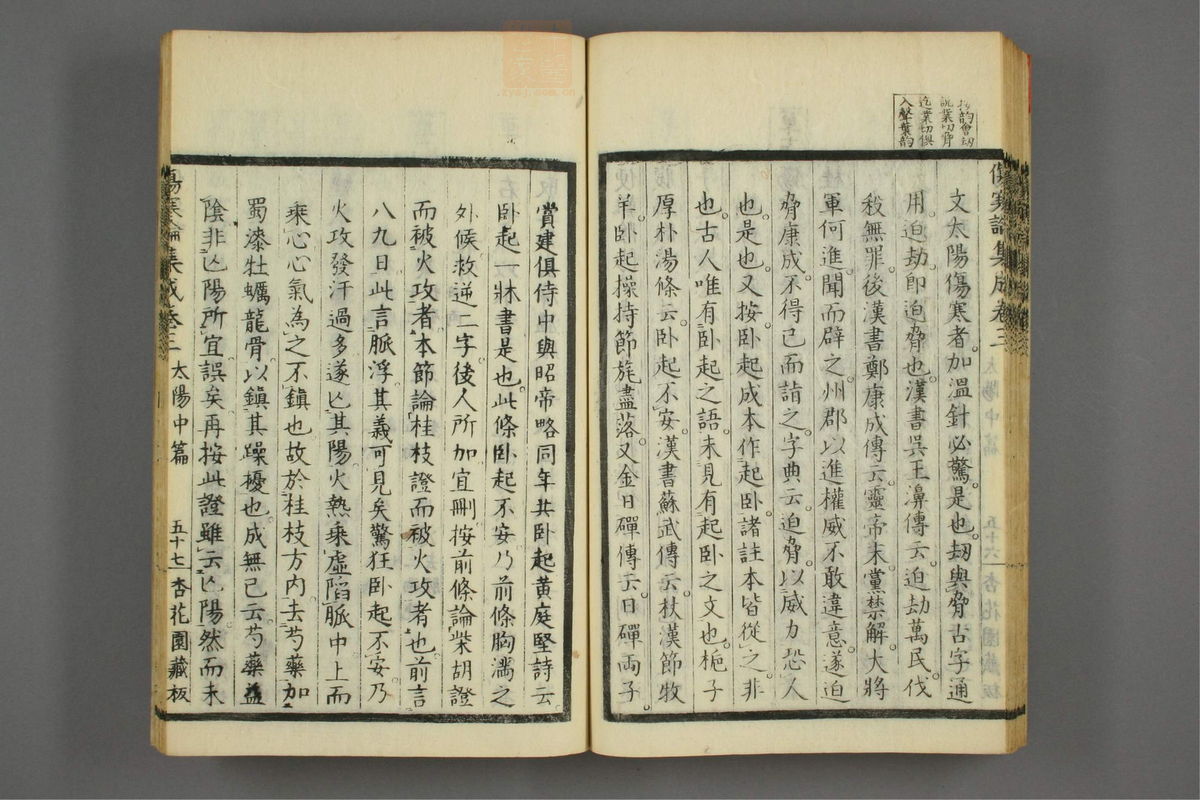 扚韵會劫
訖業切脅
迄業切俱
入聲葉韵
傷寒論集成卷三 太陽中篇 五十六 杏花園藏板
文太陽傷寒者加溫針必驚是也劫與脅古字通
用迫劫即迫脅也漢書吳王濞傳云迫劫萬民伐
殺無罪後漢書鄭康成傳云靈帝末黨禁解大將
軍何進聞而辟之州郡以進權威不敢違意遂迫
脅康成不得已而詣之字典云迫脅以威力恐人
也是也又按臥起成本作起臥諸註本皆從之非
也古人唯有臥起之語未見有起臥之文也梔子
厚朴湯條云臥起不安漢書蘇武傳云杖漢節牧
羊臥起操持節旄盡落又金日磾傳云日磾兩子
賞建俱侍中與昭帝略同年共臥起黃庭堅詩云
臥起一牀書是也此條臥起不安乃前條胸滿之
外候救逆二字後人所加宜刪按前條論柴胡證
而被火攻者本節論桂枝證而被火攻者也前言
八九日此言脈浮其義可見矣驚狂臥起不安乃
火攻發汗過多遂亾其陽火熱乘虛陷脈中上而
乘心心氣為之不鎮也故於桂枝方內去芍藥加
蜀漆牡蠣龍骨以鎮其躁擾也成無己云芍藥益
陰非亾陽所宜誤矣再按此證雖云亾陽然而未
傷寒論集成卷三 太陽中篇 五十七 杏花園藏板